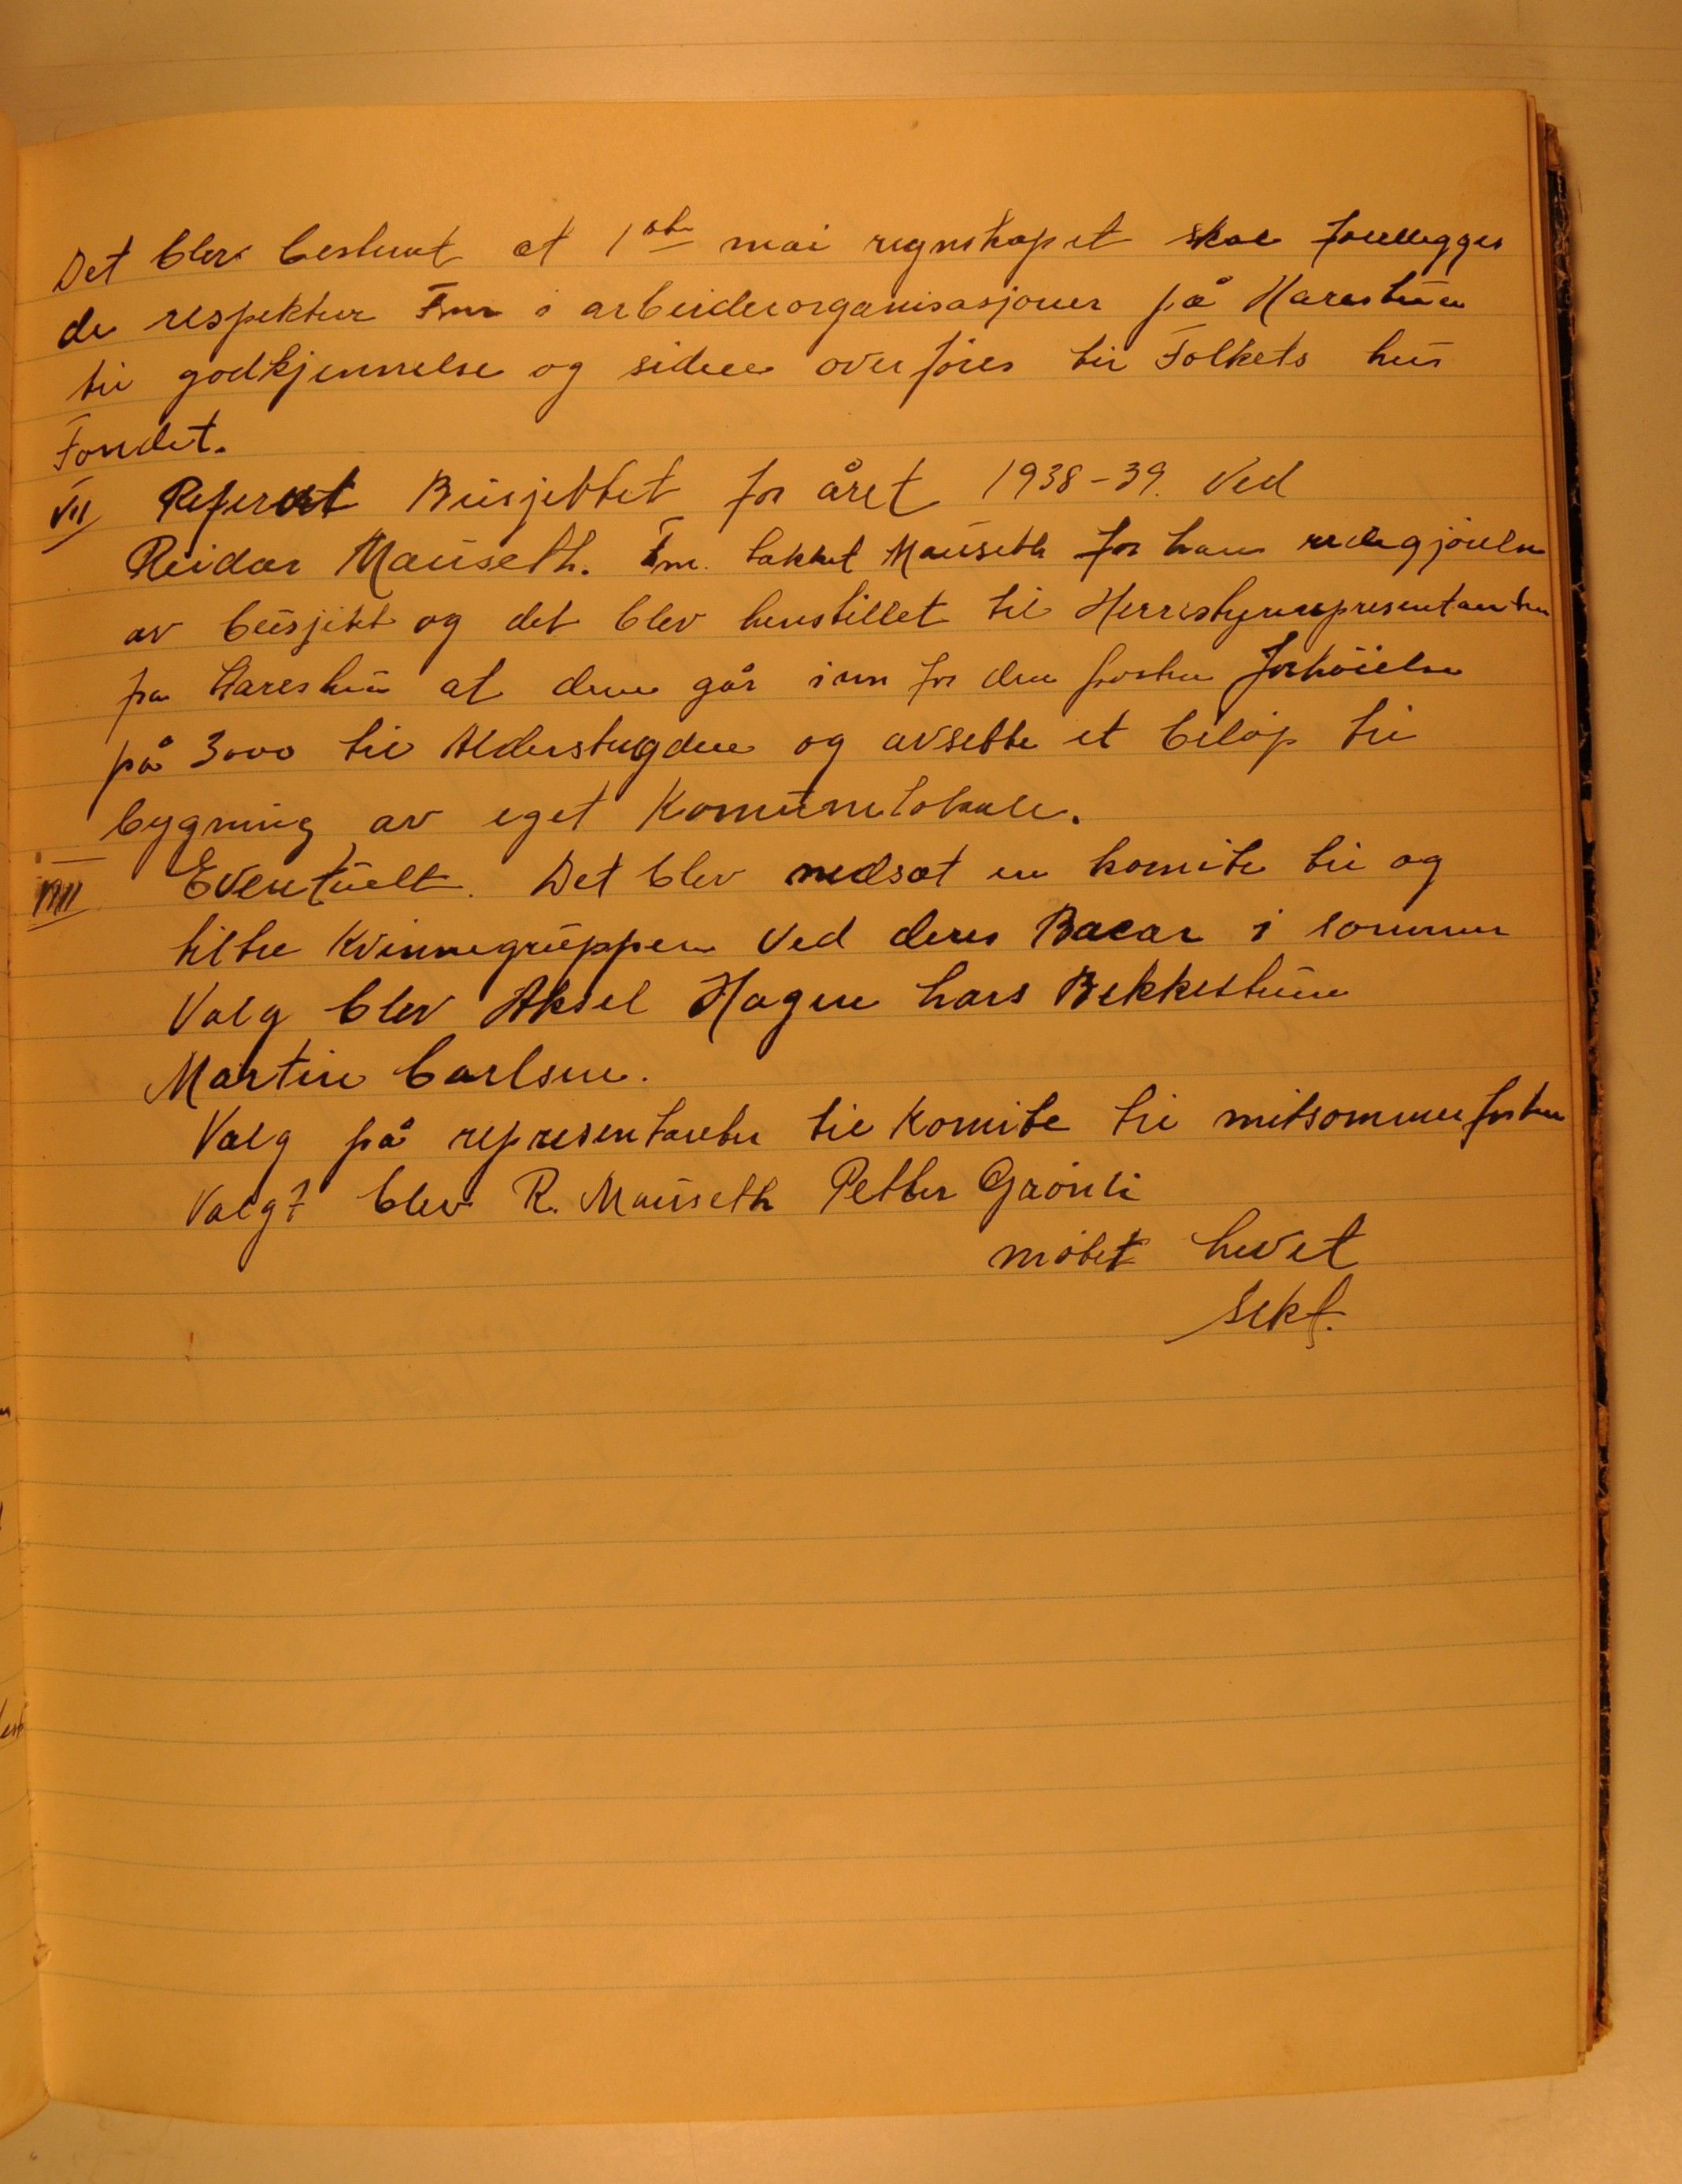 Det blev bestemt at 1ste mai regnskapet skal forelegges
de respektive Fm i arbeiderorganisasjoner på Harestua
til godkjennelse og siden overføres til Folkets hus
Fondet.
VII Referat Busjettet for året 1938-39. Ved
Reidar Mauseth. Fm. takket Mauseth for hans redegjørelse
av busjett og det blev henstillet til Herrestyrerepresentanten
på Harestua at denne går inn for den posten forhøielse
på 3000 til Alderstrygden og avsette et beløp til
bygning av eget Komunelokale.
VIII Eventuelt. Det blev nedsat en komite til og
tiltre Kvinnegruppen Ved deres Bacar i sommer
Valg blev Aksel Hagen Lars Bekkestuen
Martin Carlsen.
Valg på representanter til Komite til mitsommerfesten
Valgt blev R. Mauseth Petter Grønli
møtet hevet
sekt.